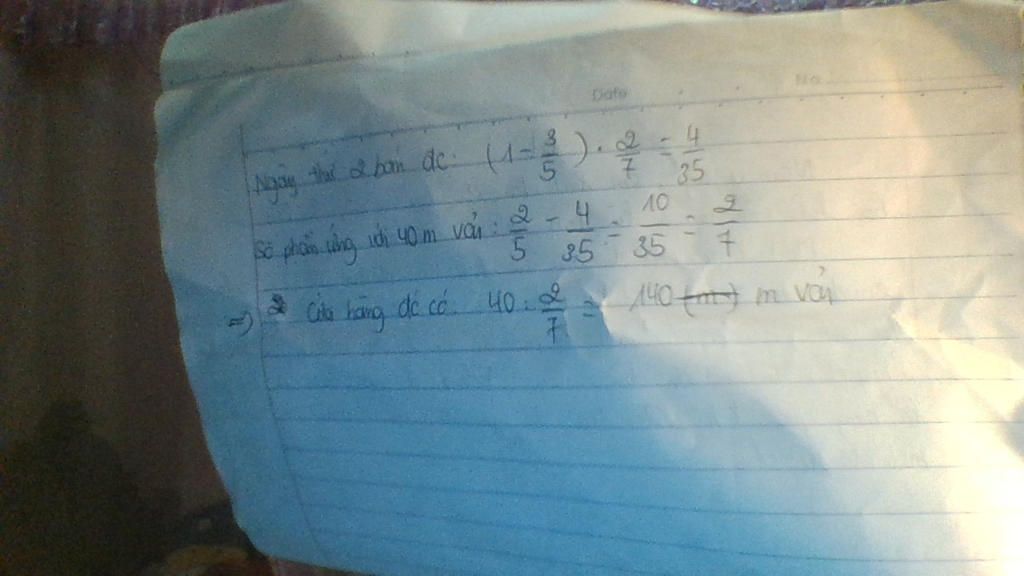 Date No.
Ngày thứ 2 bán đc: (1 - 3/5) . 2/7 = 4/35
Số phần ứng với 40 m vải: 2/5 - 4/35 = 10/35 = 2/7
=> Cửa hàng đó có: 40 : 2/7 = 140 (m) m vải